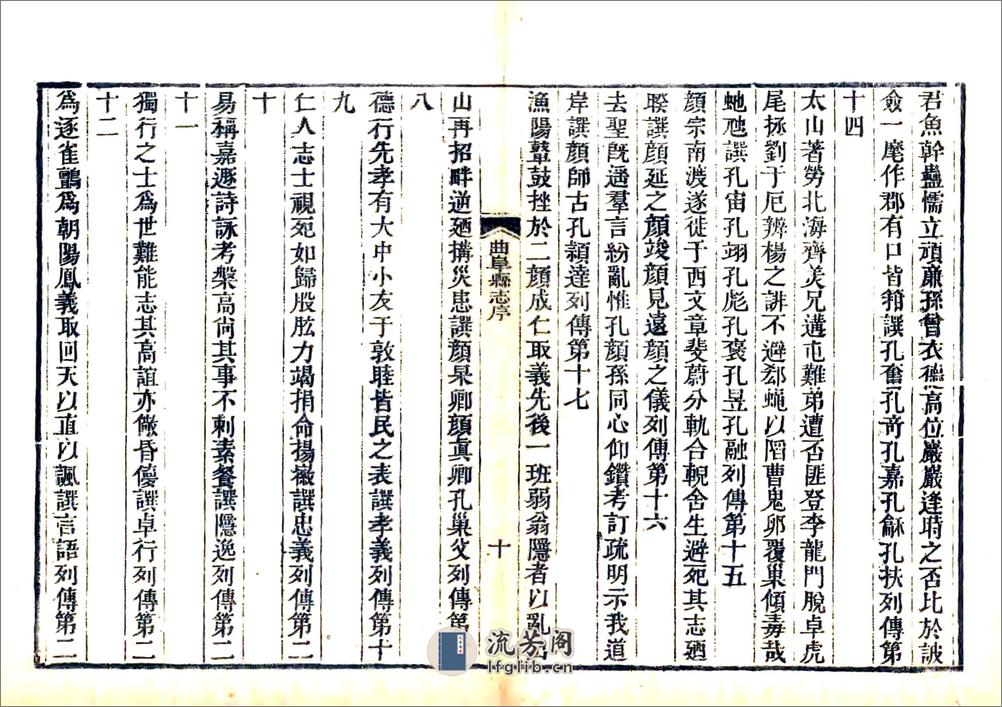 君魚幹蠱懦立頑廉孫曾衣德高位巖巖逢時之否比於詖
僉一麾作郡有口皆箝譔孔奮孔奇孔嘉孔龢孔扶列傳第
十四
太山著勞北海齊美兄遘屯難弟遭否匪登李龍門脫卓虎
尾拯劉于厄辨楊之誹不避郄蠅以陷曹鬼卵覆巢傾毒哉
虵虺譔孔宙孔翊孔彪孔褒孔昱孔融列傳第十五
顏宗南渡遂徙于西文章斐蔚分軌合輗舍生避死其志廼
睽譔顏延之顏竣顏見遠顏之儀列傳第十六
去聖旣遙羣言紛亂惟孔顏孫同心仰鑽考訂疏明示我道
岸譔顏師古孔穎達列傳第十七
漁陽鼙鼓挫於二顏成仁取義先後一班弱翁隱者以亂
曲阜縣志序
十
山再招畔逆廼搆災患譔顏杲卿顏眞卿孔巢父列傳第
八
德行先孝有大中小友于敦睦皆民之表譔孝義列傳第十
九
仁人志士視死如歸股肱力竭捐命揚徽譔忠義列傳第二
十
易稱嘉遯詩詠考槃高尚其事不刺素餐譔隱逸列傳第二
十一
獨行之士爲世難能志其高誼亦儆昏儚譔卓行列傳第二
十二
爲逐雀鸇爲朝陽鳳義取回天以直以諷譔言語列傳第二
流芳阁
lfglib.cn